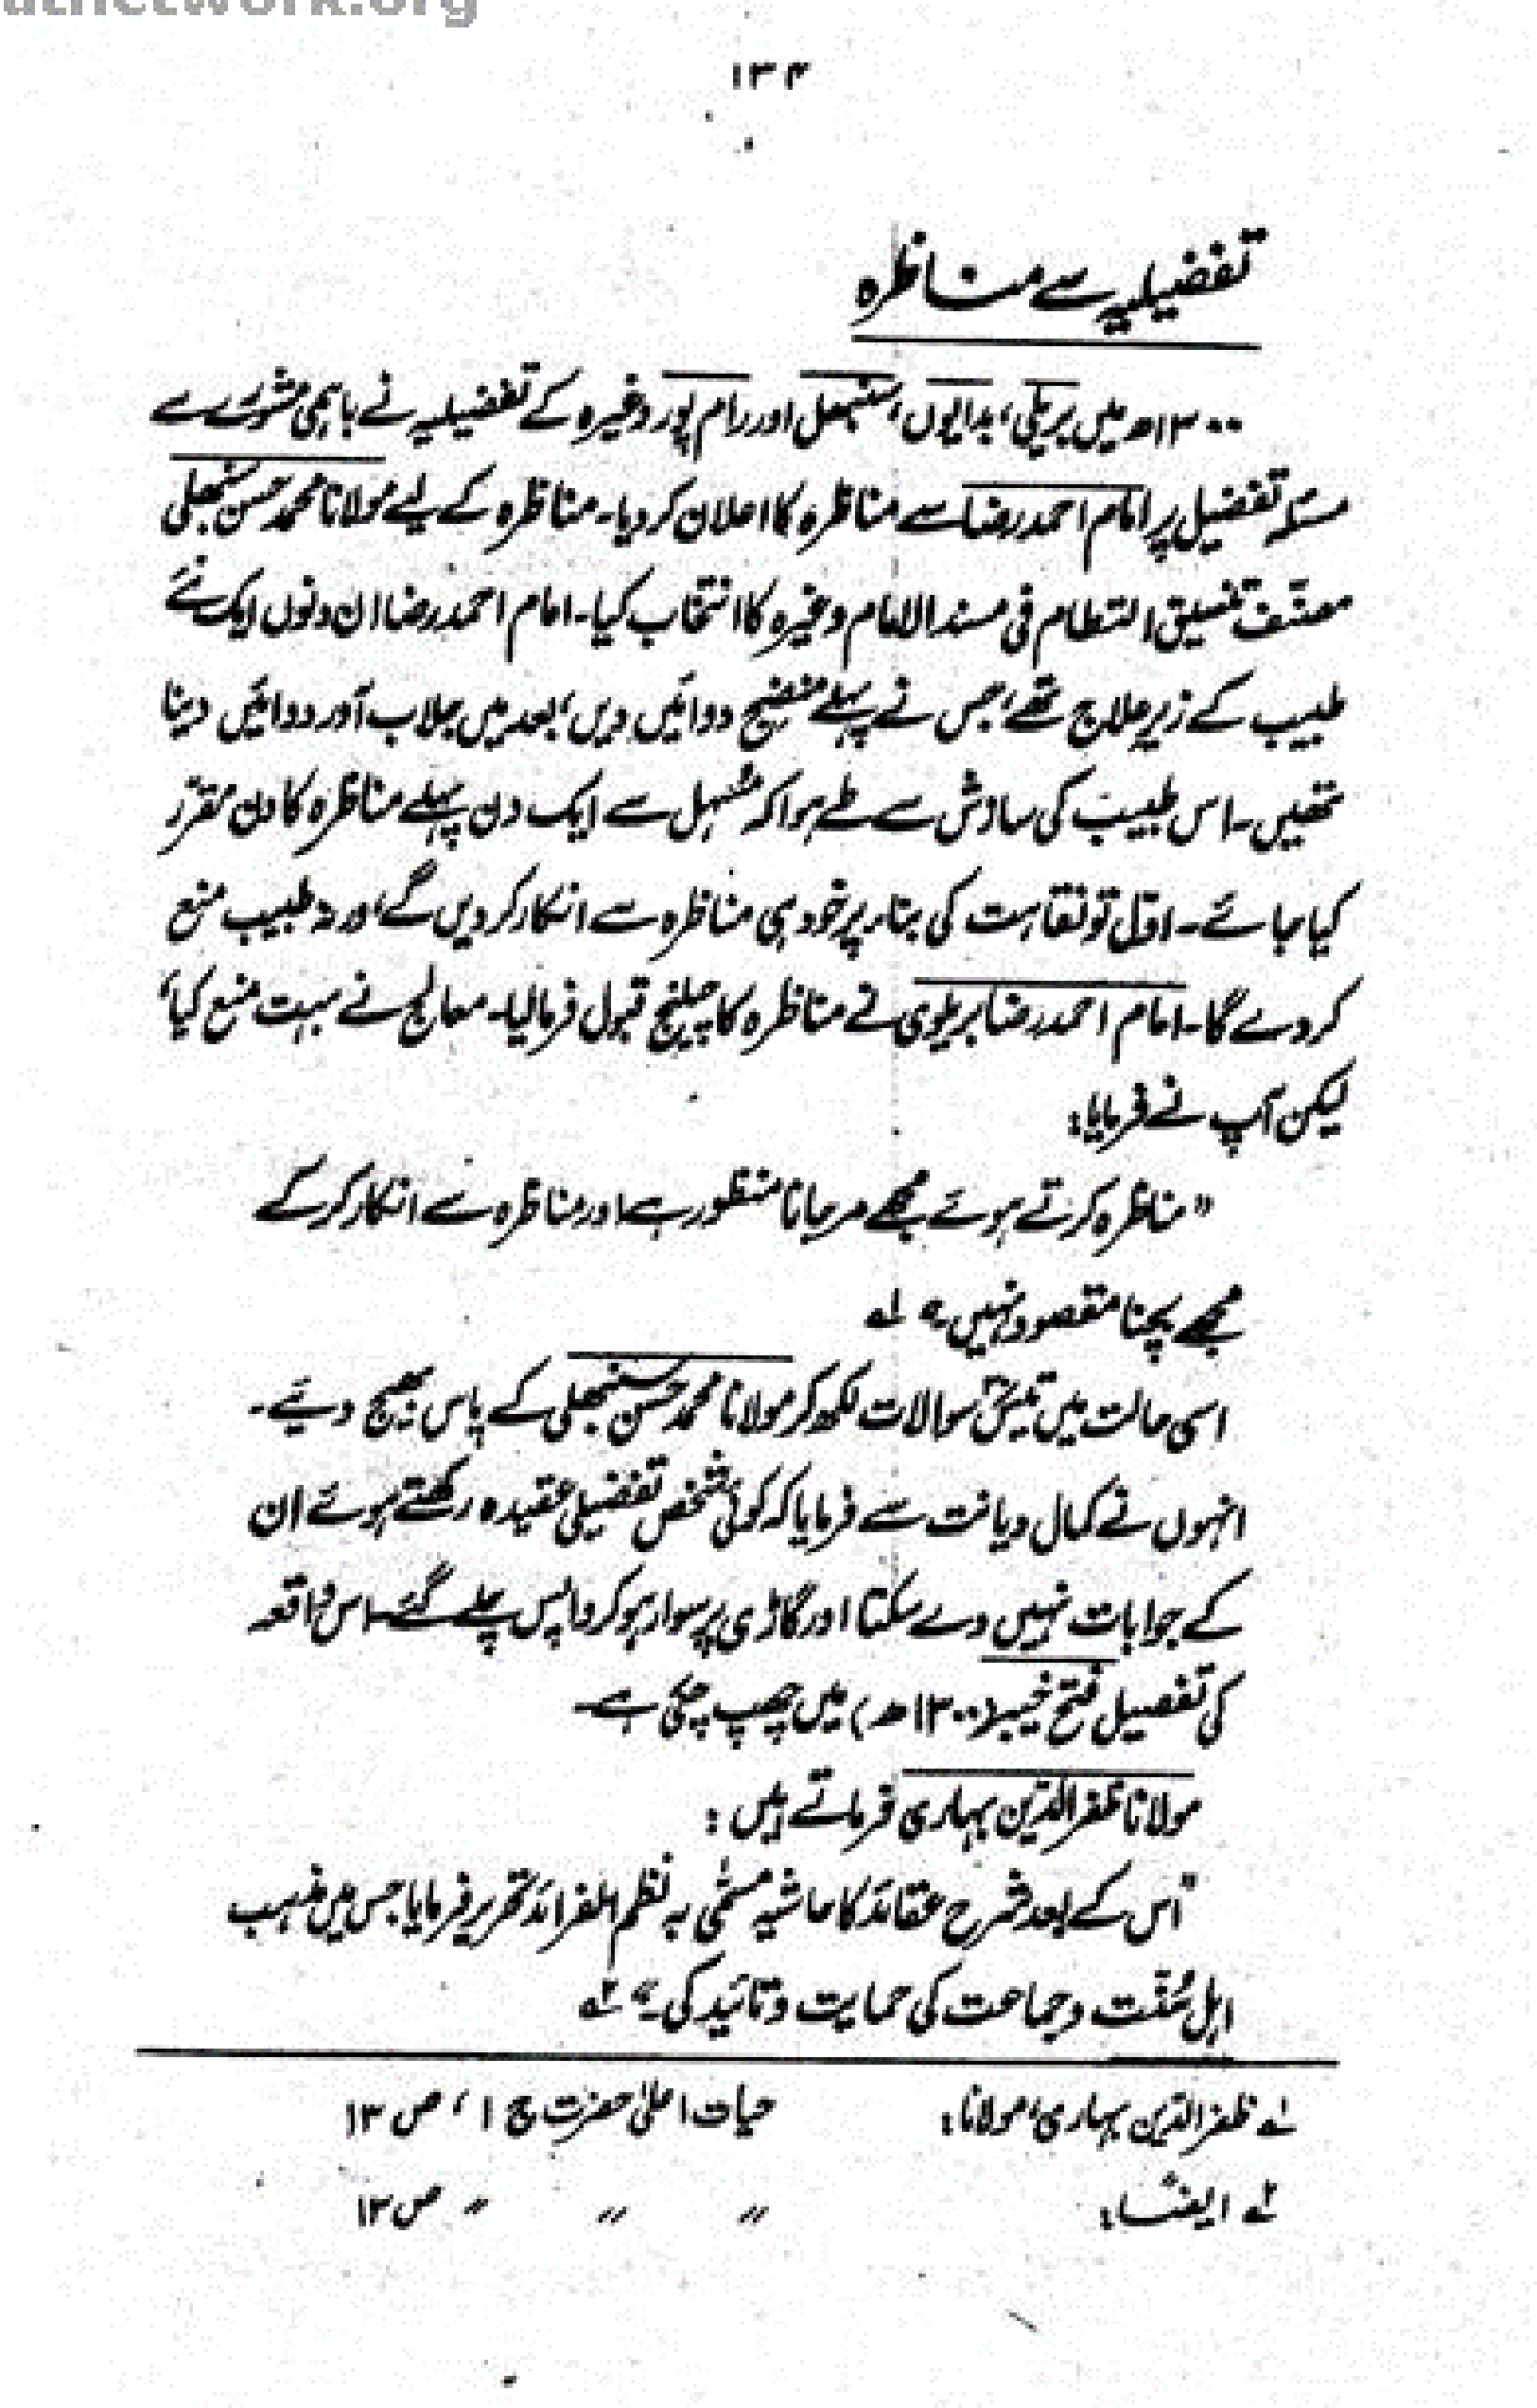 utnetwork.org
۱۳۴
تفضیلیہ سے مناظرہ
۱۳۰۰ھ میں بریلی، بدایوں، سنبھل اور رام پور وغیرہ کے تفضیلیہ نے باہمی مشورے سے
مسئلہ تفضیل پر امام احمد رضا سے مناظرہ کا اعلان کر دیا۔ مناظرہ کے لیے مولانا محمد حسن سنبھلی
مصنف تنسیق النظام فی مسند الامام وغیرہ کا انتخاب کیا۔ امام احمد رضا ان دنوں ایک نئے
طبیب کے زیرِ علاج تھے، جس نے پہلے منضج دوائیں دیں، بعد میں جلاب آور دوائیں دینا
تھیں۔ اس طبیب کی سازش سے طے ہوا کہ مُسہل سے ایک دن پہلے مناظرہ کا دن مقرّر
کیا جائے۔ اوّل تو نقاہت کی بناء پر خود ہی مناظرہ سے انکار کر دیں گے، ورنہ طبیب منع
کر دے گا۔ امام احمد رضا بریلوی نے مناظرہ کا چیلنج قبول فرما لیا۔ معالج نے بہت منع کیا،
لیکن آپ نے فرمایا:
"مناظرہ کرتے ہوئے مجھے مر جانا منظور ہے اور مناظرہ سے انکار کر کے
مجھے بچنا مقصود نہیں۔" لہ
اسی حالت میں تیسؔ سوالات لکھ کر مولانا محمد حسن سنبھلی کے پاس بھیج دیئے۔
انہوں نے کمال دیانت سے فرمایا کہ کوئی شخص تفضیلی عقیدہ رکھتے ہوئے ان
کے جوابات نہیں دے سکتا اور گاڑی پر سوار ہو کر واپس چلے گئے۔ اس واقعہ
کی تفصیل فتح خیبر (۱۳۰۰ھ) میں چھپ چکی ہے۔
مولانا ظفر الدّین بہاری فرماتے ہیں:
"اس کے بعد شرح عقائد کا حاشیہ مسمّٰی بہ نظم الفرائد تحریر فرمایا جس میں مذہب
اہلِ سُنّت و جماعت کی حمایت و تائید کی۔" ۲ہ
لہ ظفر الدّین بہاری، مولانا: حیات اعلیٰ حضرت ج ۱، ص ۱۳
۲ہ ایضًا: " " " ص ۱۳